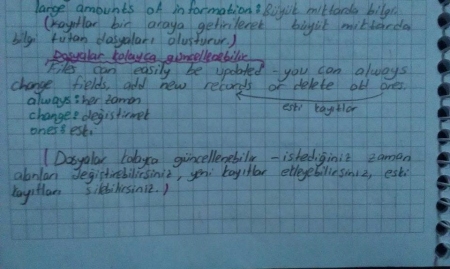 large amounts of information: Büyük mitlarda bilgi
(kayıtlar bir araya getirilerek büyük mitlarda
bilgi tutan dosyaları oluşturur.)
Dosyalar kolayca güncellenebilir
Files can easily be updated - you can always
change fields, add new records or delete old ones.
eski kayıtlar
always: her zaman
change: değiştirmek
ones: eski
(Dosyalar kolayca güncellenebilir - istediğiniz zaman
alanları değiştirebilirsiniz, yeni kayıtlar ekleyebilirsiniz, eski
kayıtları silebilirsiniz.)